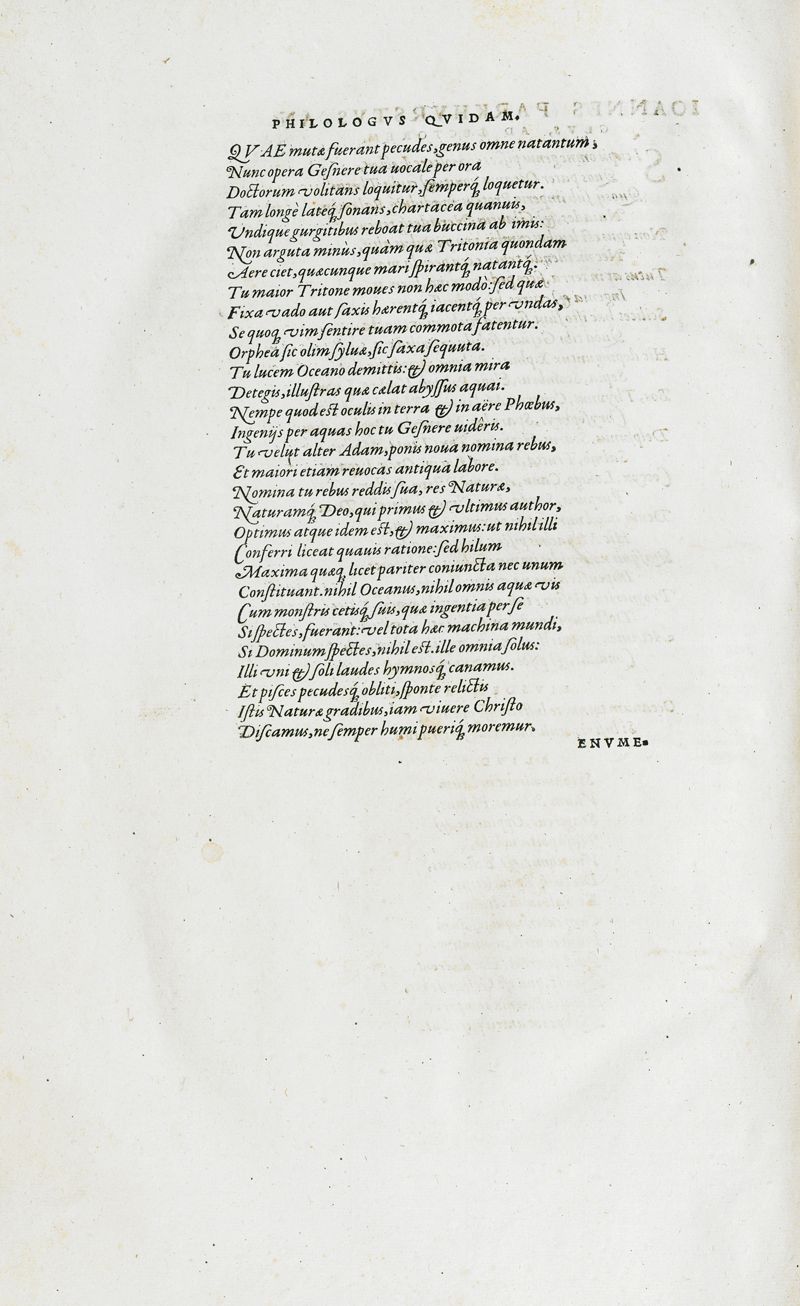 PHILOLOGVS QVIDAM.
QVAE mutæ fuerant pecudes, genus omne natantum,
Nunc opera Geſnere tua uocale per ora
Doctorum volitans loquitur, ſemperq́ꝫ loquetur.
Tam longè lateq́ꝫ ſonans, chartacea quanuis,
Vndique gurgitibus reboat tua buccina ab imis:
Non arguta minùs, quàm quæ Tritonia quondam
Aere ciet, quæcunque mari ſpirantq́ꝫ natantq́ꝫ.
Tu maior Tritone moues non hæc modò: ſed quæ
Fixa vado aut ſaxis hærentq́ꝫ iacentq́ꝫ per vndas,
Se quoqꝫ vim ſentire tuam commota fatentur.
Orpheâ ſic olim ſyluæ, ſic ſaxa ſequuta.
Tu lucem Oceano demittis: & omnia mira
Detegis, illuſtras quæ cælat abyſſus aquai.
Nempe quod eſt oculis in terra & in aëre Phœbus,
Ingenijs per aquas hoc tu Geſnere uidêris.
Tu velut alter Adam, ponis noua nomina rebus,
Et maiori etiam reuocas antiqua labore.
Nomina tu rebus reddis ſua, res Naturæ,
Naturamq́ꝫ Deo, qui primus & vltimus author,
Optimus atque idem eſt, & maximus: ut nihil illi
Conferri liceat quauis ratione: ſed hilum
Maxima quæqꝫ licet pariter coniuncta nec unum
Conſtituant. nihil Oceanus, nihil omnis aquæ vis
Cum monſtris cetisq́ꝫ ſuis, quæ ingentia per ſe
Si ſpectes, fuerant: vel tota hæc machina mundi,
Si Dominum ſpectes, nihil eſt. ille omnia ſolus:
Illi vni & ſoli laudes hymnosq́ꝫ canamus.
Et piſces pecudesq́ꝫ obliti, ſponte relictis
Iſtis Naturæ gradibus, iam viuere Chriſto
Diſcamus, ne ſemper humi pueriq́ꝫ moremur.
ENVME=